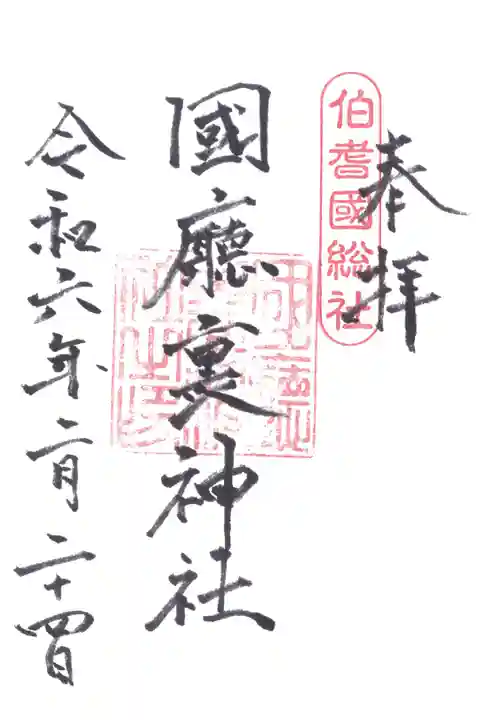 奉拝
伯耆國総社
國廳裏神社
令和六年二月二十四日